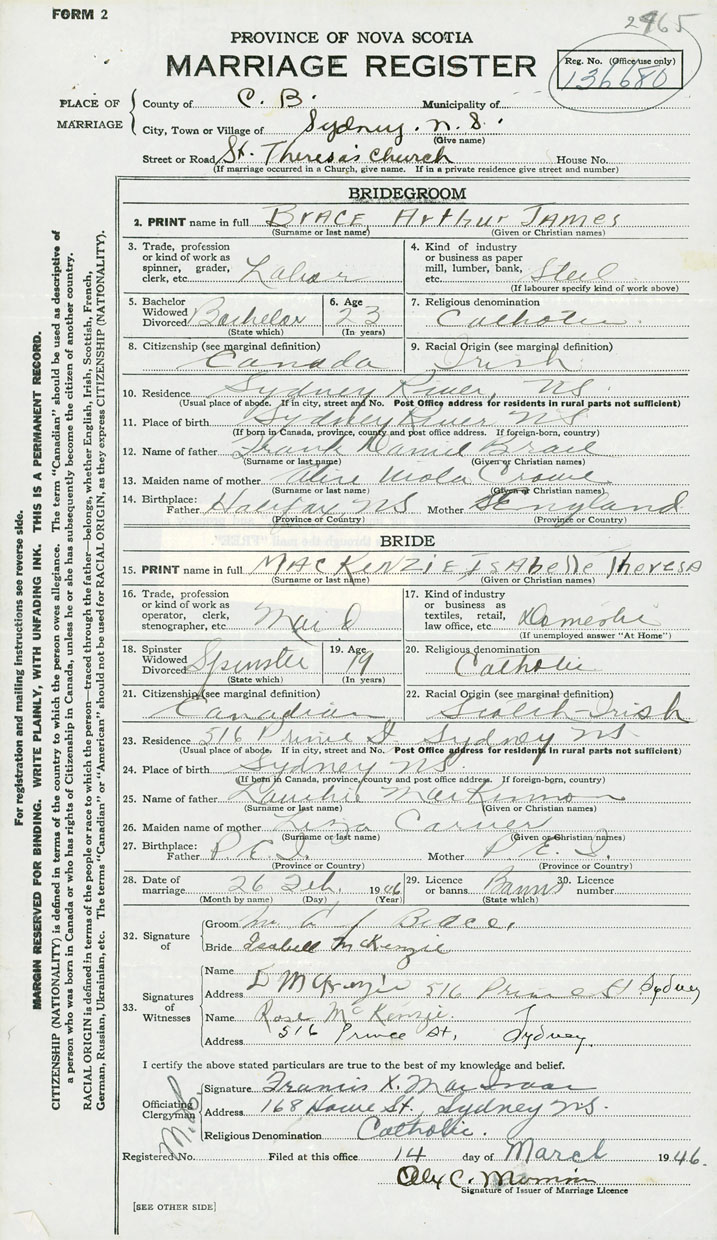 FORM 2
2465
PROVINCE OF NOVA SCOTIA
MARRIAGE REGISTER
Reg. No. (Office use only)
136680
PLACE OF MARRIAGE
County of C. B. Municipality of
City, Town or Village of Sydney. N. S.
(Give name)
Street or Road St. Theresa's Church House No.
(If marriage occurred in a Church, give name. If in a private residence give street and number)
BRIDEGROOM
2. PRINT name in full BRACE Arthur JAMES
(Surname or last name) (Given or Christian names)
3. Trade, profession or kind of work as spinner, grader, clerk, etc. Labor
4. Kind of industry or business as paper mill, lumber, bank, etc. Steel
(If labourer specify kind of work above)
5. Bachelor Widowed Divorced Bachelor
(State which)
6. Age 23
(In years)
7. Religious denomination Catholic
8. Citizenship (see marginal definition) Canada
9. Racial Origin (see marginal definition) Irish
10. Residence Sydney River, NS
(Usual place of abode. If in city, street and No. Post Office address for residents in rural parts not sufficient)
11. Place of birth Sydney River NS
(If born in Canada, province, county and post office address. If foreign-born, country)
12. Name of father Daniel
(Surname or last name) (Given or Christian names)
13. Maiden name of mother Viola Crowe
(Surname or last name) (Given or Christian names)
14. Birthplace: Father Halifax NS Mother England
(Province or Country) (Province or Country)
BRIDE
15. PRINT name in full MACKENZIE ISAbelle Theresa
(Surname or last name) (Given or Christian names)
16. Trade, profession or kind of work as operator, clerk, stenographer, etc. Maid
17. Kind of industry or business as textiles, retail, law office, etc. Domestic
(If unemployed answer "At Home")
18. Spinster Widowed Divorced Spinster
(State which)
19. Age 19
(In years)
20. Religious denomination Catholic
21. Citizenship (see marginal definition) Canadian
22. Racial Origin (see marginal definition) Scotch-Irish
23. Residence 516 Prince St Sydney NS
(Usual place of abode. If in city, street and No. Post Office address for residents in rural parts not sufficient)
24. Place of birth Sydney NS
(If born in Canada, province, county and post office address. If foreign-born, country)
25. Name of father Lauchie MacKinnon
(Surname or last name) (Given or Christian names)
26. Maiden name of mother Liza Carver
(Surname or last name) (Given or Christian names)
27. Birthplace: Father P.E.I. Mother P.E.I.
(Province or Country) (Province or Country)
28. Date of marriage 26 Feb. 1946
(Month by name) (Day) (Year)
29. Licence or banns Banns
(State which)
30. Licence number
32. Signature of
Groom A J Brace.
Bride Isabell McKenzie
33. Signatures of Witnesses
Name D McKenzie
Address 516 Prince St Sydney
Name Rose McKenzie
Address 516 Prince St, Sydney
I certify the above stated particulars are true to the best of my knowledge and belief.
Officiating Clergyman
Signature Francis X. MacIsaac
Address 168 Howe St, Sydney NS.
Religious Denomination Catholic.
Registered No. Filed at this office 14 day of March 1946.
Alex C.
Signature of Issuer of Marriage Licence
[SEE OTHER SIDE]
For registration and mailing instructions see reverse side.
MARGIN RESERVED FOR BINDING. WRITE PLAINLY, WITH UNFADING INK. THIS IS A PERMANENT RECORD.
CITIZENSHIP (NATIONALITY) is defined in terms of the country to which the person owes allegiance. The term "Canadian" should be used as descriptive of
a person who was born in Canada or who has rights of Citizenship in Canada, unless he or she has subsequently become the citizen of another country.
RACIAL ORIGIN is defined in terms of the people or race to which the person—traced through the father—belongs, whether English, Irish, Scottish, French,
German, Russian, Ukrainian, etc. The terms "Canadian" or "American" should not be used for RACIAL ORIGIN, as they express CITIZENSHIP (NATIONALITY).